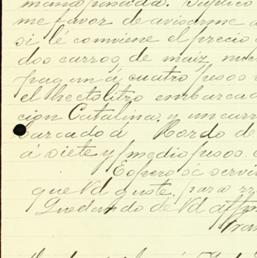 mancomunada. Suplico
me favor de avisarme
si le conviene el precio
dos carros de maiz
pagan á cuatro pesos
el hectolitro embarcad
cion Catalina, y un carr
barcado á Bordo de
á siete y medio pesos
Espero se servi
que Vd guste, para
Quedando de Vd